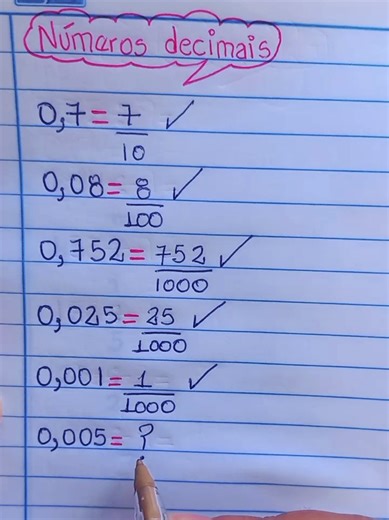 Números decimais
0,7 = 7/10 ✓
0,08 = 8/100 ✓
0,752 = 752/1000 ✓
0,025 = 25/1000 ✓
0,001 = 1/1000 ✓
0,005 = ?